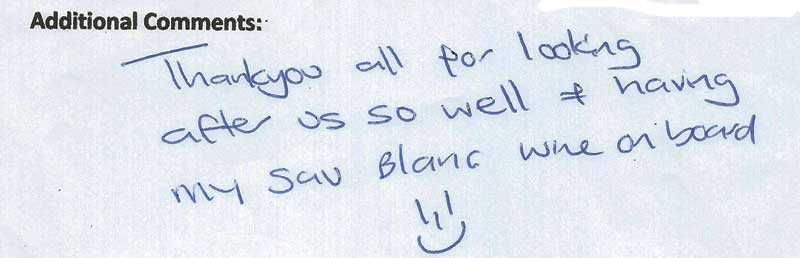 Additional Comments:
Thankyou all for looking
after us so well & having
my Sav Blanc wine on board